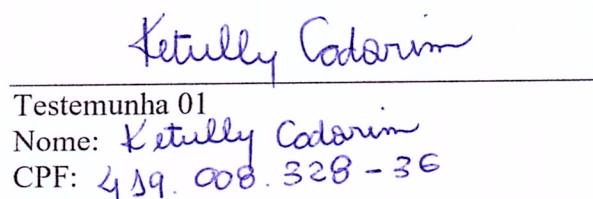 Ketully Codarim
Testemunha 01
Nome: Ketully Codarim
CPF: 419.008.328-36